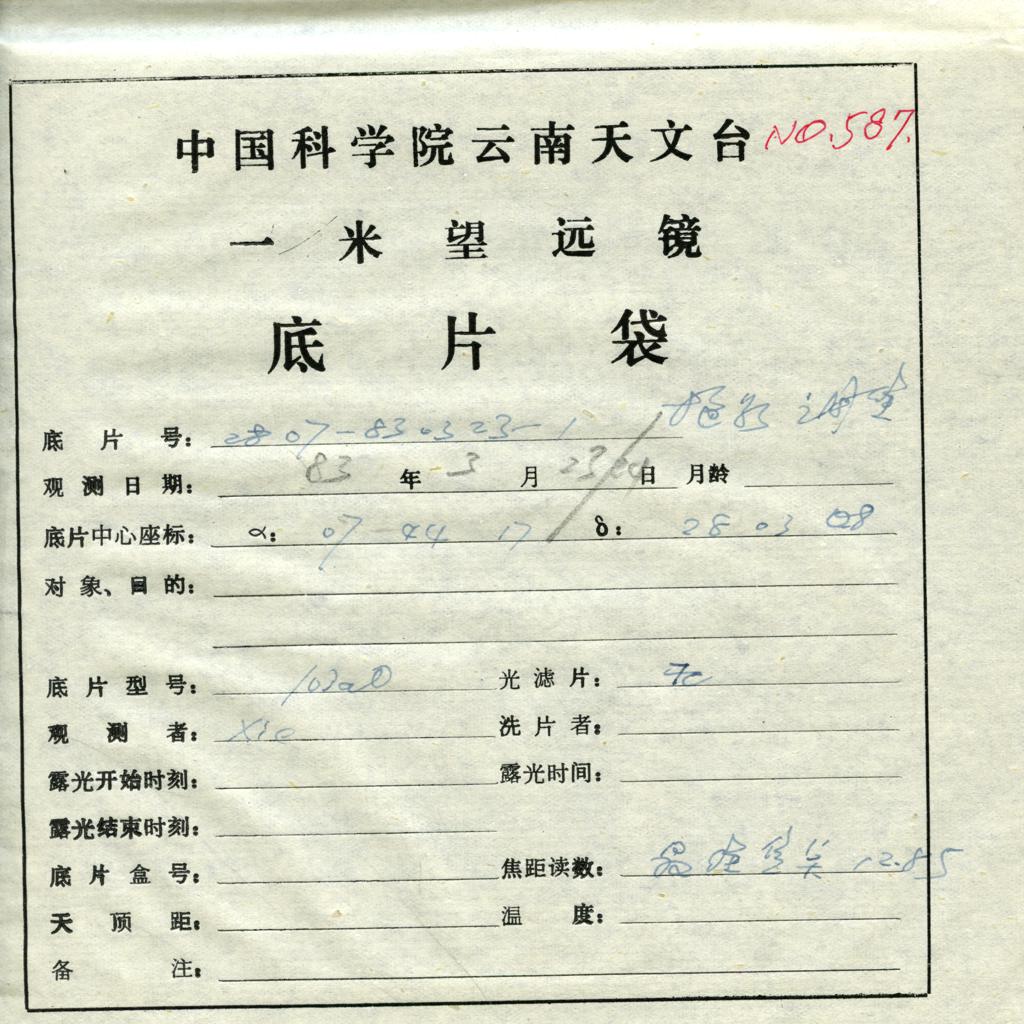 中国科学院云南天文台 NO.587.
一米望远镜
底片袋
底片号: 2807-830323-1
观测日期: 83年3月23/24日 月龄
底片中心座标: α: 07 44 17 δ: 28 03 08
对象、目的:
底片型号: 103aO 光滤片:
观测者: Xie 洗片者:
露光开始时刻: 露光时间:
露光结束时刻:
底片盒号: 焦距读数: 12.85
天顶距: 温度:
备注: